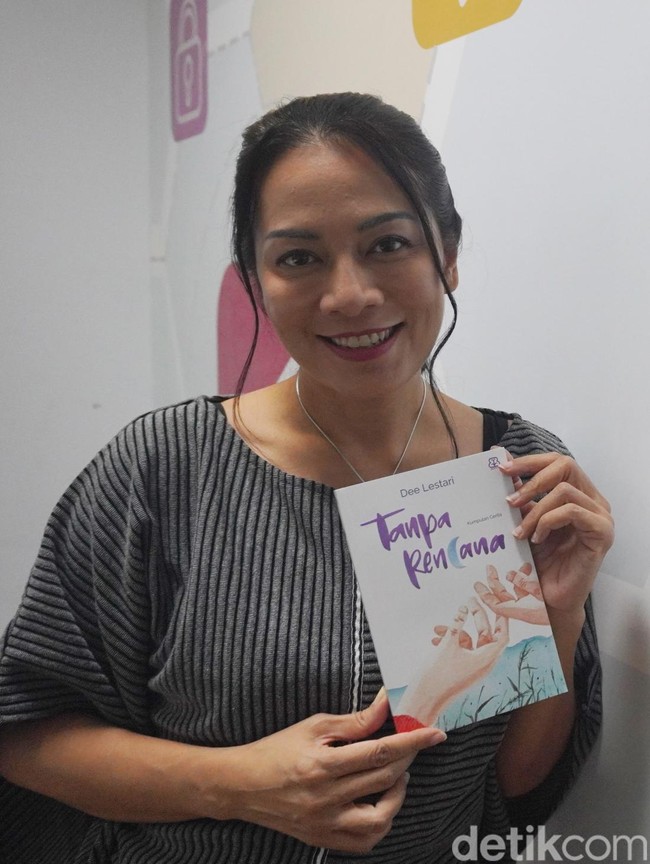 Dee Lestari
Tanpa
Kumpulan Cerita
Rencana
detikcom